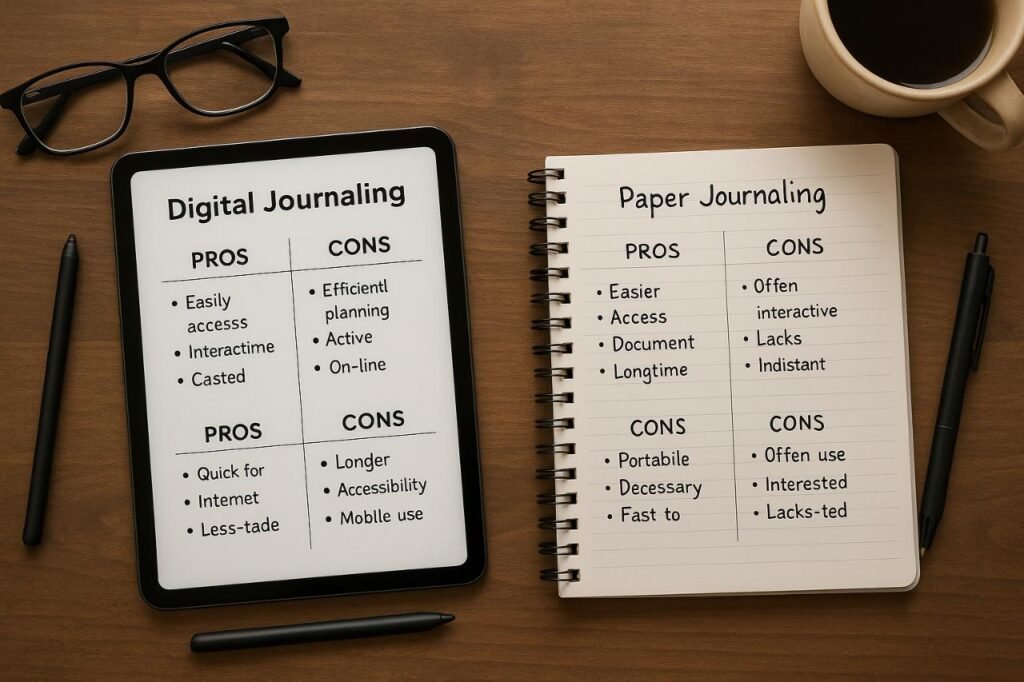 Digital Journaling
PROS
CONS
• Easily
accesss
• Interactime
• Casted
• Efficientl
planning
• Active
• On-line
PROS
CONS
• Quick for
• Internet
• Less-tade
• Longer
• Accessibility
• Moblle use
Paper Journaling
PROS
CONS
• Easier
• Access
• Document
• Longtime
• Offen
interactive
• Lacks
• Indistant
CONS
CONS
• Portabile
• Decessary
• Fast to
• Offen use
• Interested
• Lacks-ted